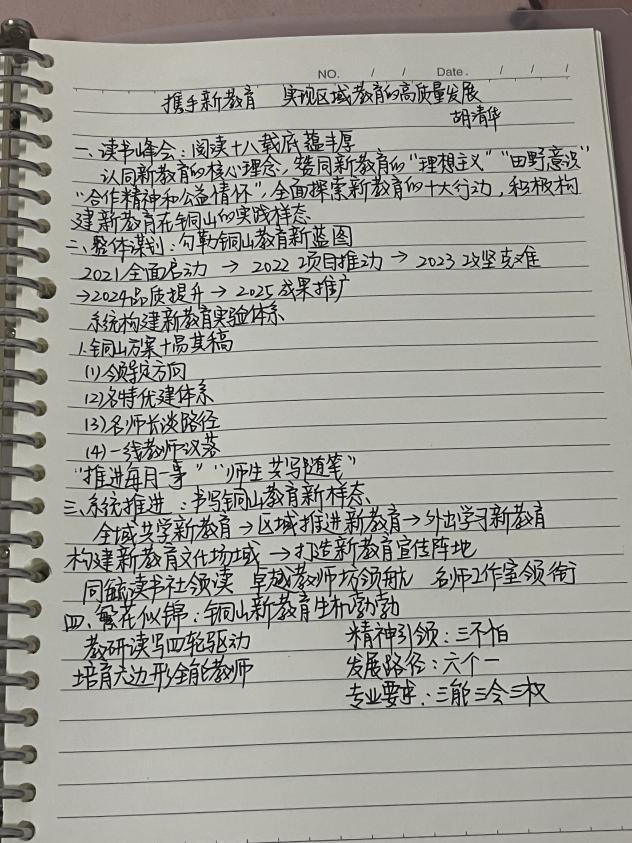 NO. / / Date. / / /
携手新教育 实现区域教育的高质量发展
胡清华
一、读书峰会:阅读十八载底蕴丰厚
认同新教育的核心理念,赞同新教育的“理想主义”“田野意识”
“合作精神和公益情怀”,全面探索新教育的十大行动,积极构
建新教育在铜山的实践样态
二、整体谋划:勾勒铜山教育新蓝图
2021全面启动 → 2022项目推动 → 2023攻坚克难
→2024品质提升 → 2025成果推广
系统构建新教育实验体系
1.铜山方案十易其稿
(1)领导定方向
(2)名特优建体系
(3)名师长谈路径
(4)一线教师议落
“推进每月一事” “师生共写随笔”
三、系统推进:书写铜山教育新样态、
全域共学新教育→区域推进新教育→外出学习新教育
构建新教育文化场域 →打造新教育宣传阵地
同毓读书社领读 卓越教师坊领航 名师工作室领衔
四、繁花似锦:铜山新教育生机勃勃
教研读写四轮驱动 精神引领:三不怕
培育六边形全能教师 发展路径:六个一
专业要求:三能三会三权